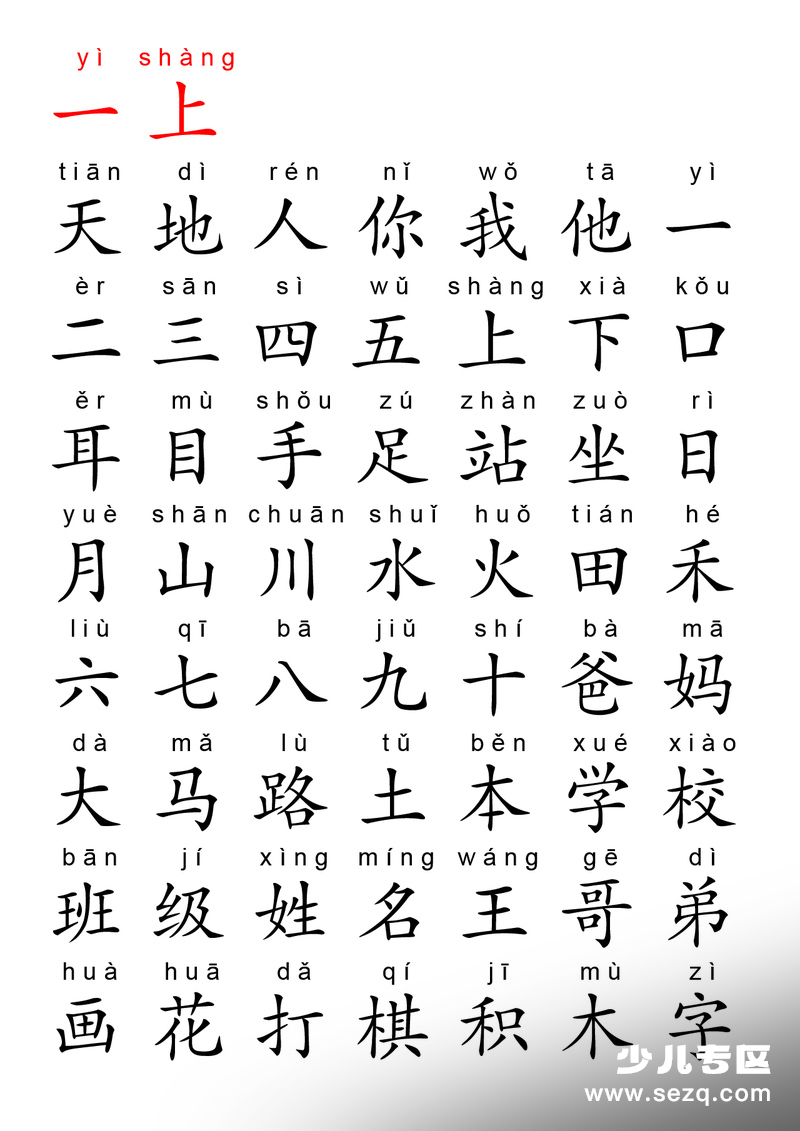 yì shàng
一 上
tiān dì rén nǐ wǒ tā yì
天 地 人 你 我 他 一
èr sān sì wǔ shàng xià kǒu
二 三 四 五 上 下 口
ěr mù shǒu zú zhàn zuò rì
耳 目 手 足 站 坐 日
yuè shān chuān shuǐ huǒ tián hé
月 山 川 水 火 田 禾
liù qī bā jiǔ shí bà mā
六 七 八 九 十 爸 妈
dà mǎ lù tǔ běn xué xiào
大 马 路 土 本 学 校
bān jí xìng míng wáng gē dì
班 级 姓 名 王 哥 弟
huà huā dǎ qí jī mù zì
画 花 打 棋 积 木 字
少儿专区
www.sezq.com